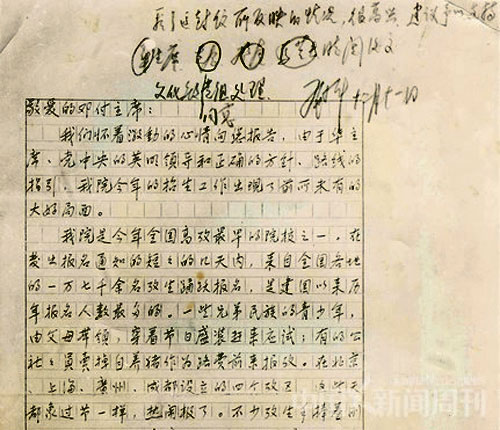 看了这封信所反映的情况，很高兴。建议予以支持
华主席
阅
文化部党组处理。
邓小平 十二月十一日
敬爱的邓付主席：
我们怀着激动的心情向您报告，由于华主
席、党中央的英明领导和正确的方针、路线的
指引，我院今年的招生工作出现了前所未有的
大好局面。
我院是今年全国高校最早的院校之一。在
发出报名通知的短短的几天内，来自全国各地
的一万七千余名考生踊跃报名，是建国以来历
年报名人数最多的。一些兄弟民族的青少年，
由父母带领，穿着节日盛装赶来应试；有的公
社社员卖掉自养猪作为路费前来报考。在北京
、上海、广州、成都设立的四个考区，这些天
都象过节一样，热闹极了。不少考生手持着刚
中国新闻周刊